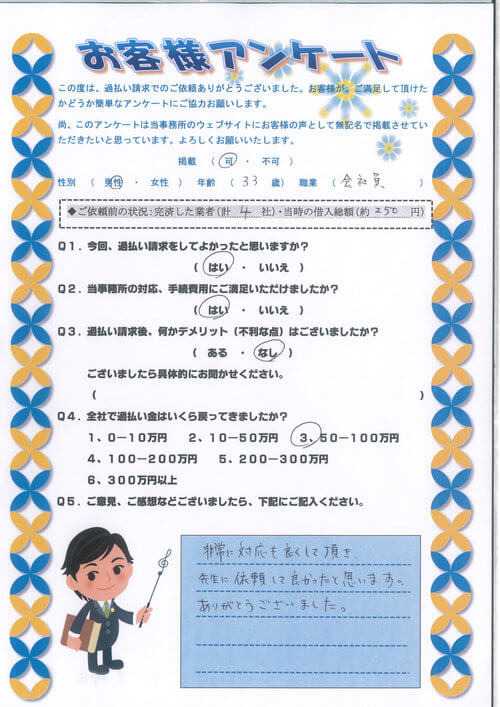 お客様アンケート
この度は、過払い請求でのご依頼ありがとうございました。お客様が、ご満足して頂けた
かどうか簡単なアンケートにご協力お願いします。
尚、このアンケートは当事務所のウェブサイトにお客様の声として無記名で掲載させてい
ただきたいと思っています。よろしくお願いいたします。
掲載 ( 可 ・ 不可 )
性別 ( 男性 ・ 女性 ) 年齢 ( 33 歳) 職業 ( 会社員 )
◆ご依頼前の状況:完済した業者(計 4 社)・当時の借入総額(約 250 円)
Q1.今回、過払い請求をしてよかったと思いますか?
( はい ・ いいえ )
Q2.当事務所の対応、手続費用にご満足いただけましたか?
( はい ・ いいえ )
Q3.過払い請求後、何かデメリット(不利な点)はございましたか?
( ある ・ なし )
ございましたら具体的にお聞かせください。
( )
Q4.全社で過払い金はいくら戻ってきましたか?
1、0-10万円 2、10-50万円 3、50-100万円
4、100-200万円 5、200-300万円
6、300万円以上
Q5.ご意見、ご感想などございましたら、下記にご記入ください。
非常に対応も良くして頂き、
先生に依頼して良かったと思います。
ありがとうございました。